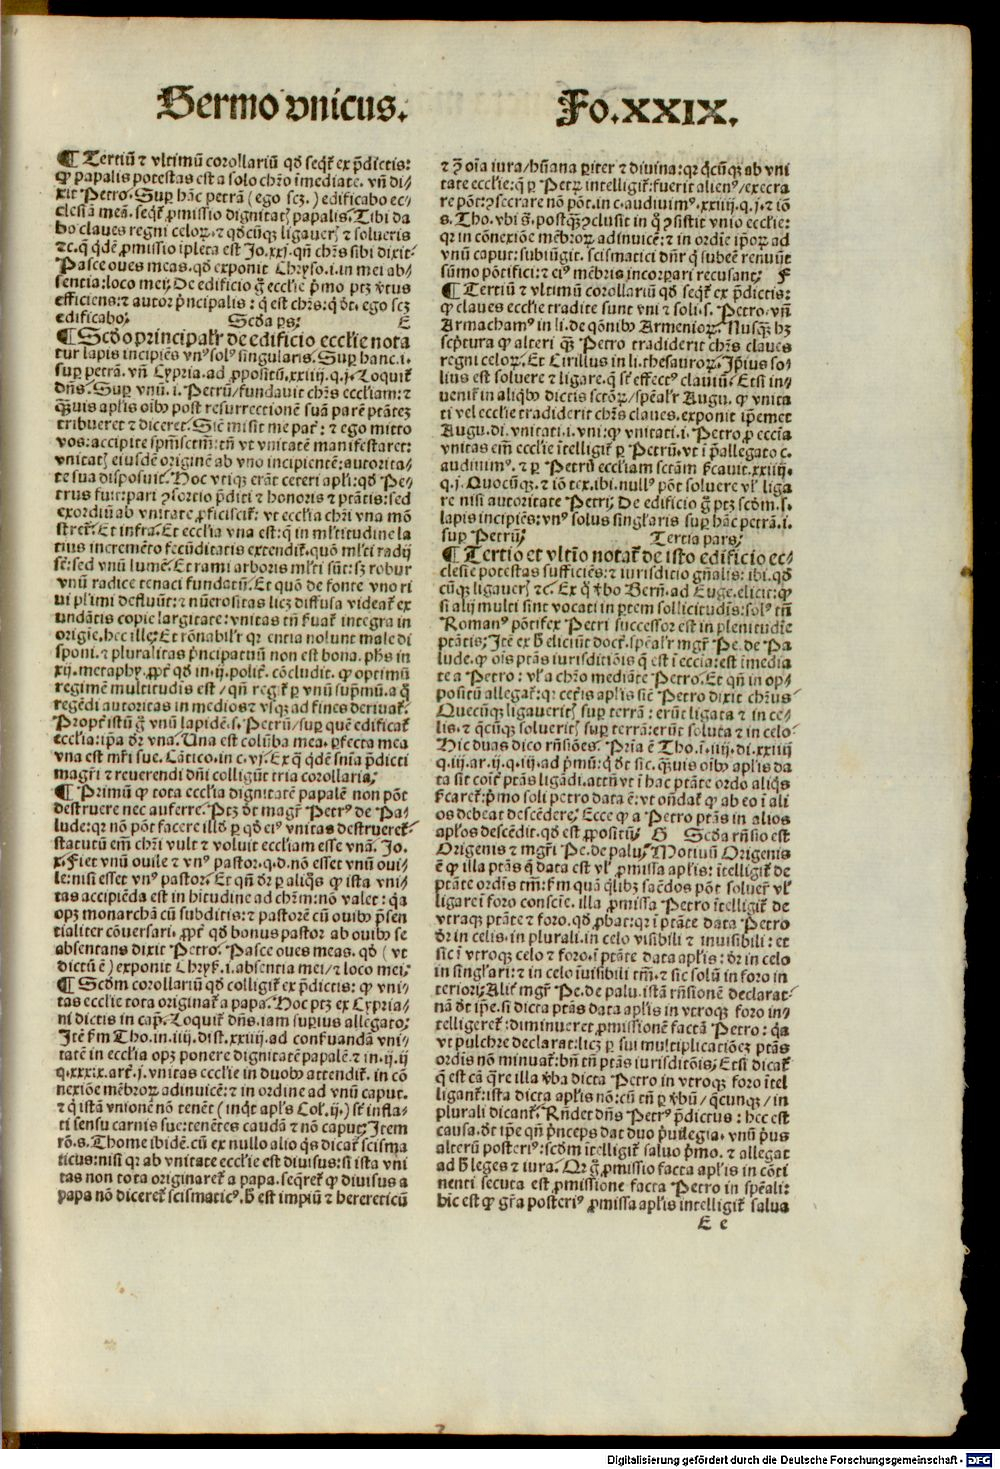 Sermo vnicus. Fo.XXIX.
¶ Tertiū ⁊ vltimū corollariū qđ seqt᷑ ex p̄dictis:
ꝙ papalis potestas est a solo chr̄o īmediate. vn̄ di-
xit Petro. Suꝑ hāc petrā (ego scꝫ.) edificabo ec-
clesiā meā. seqt᷑ ꝓmissio dignitatꝭ papalis. Tibi da
bo claues regni celoꝝ. ⁊ qđcūqꝫ ligauerꝭ ⁊ solueris
⁊c. q̄ qdē ꝓmissio īpleta est Jo.xxj. qn̄ chr̄s sibi dixit-
Pasce oues meas. qđ exponit Chryso. i. in mei ab-
sentia: loco mei. De edificio ḡ eccl̄ie p̄mo ptꝫ ꝟtus
efficiens: ⁊ autor p̄ncipalis: q̄ est chr̄s: q̄ dt̄. ego scꝫ
edificabo. Scd̄a ps. E
¶ Scd̄o principalr̄ de edificio eccl̄ie nota
tur lapis incipiēs vnꝰ solꝰ singularis. Suꝑ hanc. i.
suꝑ petrā. vn̄ Cypria. ad ꝓpositū. xxiiij. q. j. Loquit᷑
dn̄s. Suꝑ vnū. i. Petrū/ fundauit chr̄s eccliam: ⁊
qꝫuis aplis oibꝰ post resurrectionē suā parē ptātez
tribueret ⁊ diceret. Sic̄ misit me pat᷑: ⁊ ego mitto
vos: accipite spm̄sctm̄: tn̄ vt vnitatē manifestaret:
vnitatꝭ eiusdē originē ab vno incipientē: autorita-
te sua disposuit. Hoc vtiqꝫ erāt ceteri apli: qđ Pe-
trus fuit: pari ꝯsortio p̄diti ⁊ honoris ⁊ ptātis: sed
exordiū ab vnitate ꝓficiscit᷑: vt ecclia chr̄i vna mō
stret᷑. Et infra. Et ecclia vna est: q̄ in ml̄titudine la
tius incremēto fecūditatis extendit᷑. quō ml̄ti radij
st̄: sed vnū lumē. Et rami arboris ml̄ti sūt: sꝫ robur
vnū radice tenaci fundatū. Et quō de fonte vno ri
ui pl̄imi defluūt: ⁊ nūerositas licꝫ diffusa videat᷑ ex
undātis copie largitate: vnitas tn̄ ſuat᷑ integra in
origīe. hec ille. Et rōnabilr̄ qꝛ entia nolunt male di
sponi. ⁊ pluralitas p̄ncipatuū non est bona. ph̄s in
xij. metaphy. ꝓpt᷑ qđ in. ij. polit᷑. cōcludit. ꝙ optimū
regimē multitudīs est/ qn̄ regit᷑ ꝑ vnū supm̄ū. a q̄
regēdi autoritas in medios ⁊ vsqꝫ ad fines deriuat᷑.
Propt᷑ istū ḡ vnū lapidē. s. Petrū/ suꝑ quē edificat᷑
ecclia: ipa dr̄ vna. Una est colūba mea. ꝑfecta mea
vna est mr̄i sue. Cātico. in c. vj. Ex q̄ qdē snīa p̄dicti
magr̄i ⁊ reuerendi dn̄i colligūt tria corollaria.
¶ Primū ꝙ tota ecclia dignitatē papalē non pōt
destruere nec auferre. Ptꝫ dt̄ magr̄ Petrꝰ de Pa-
lude: qꝛ nō pōt facere illđ ꝑ qđ eiꝰ vnitas destrueret᷑
statutū em̄ chr̄i vult ⁊ voluit eccliam esse vnā. Jo.
x. Fiet vnū ouile ⁊ vnꝰ pastor. q. d. nō esset vnū oui-
le: nisi esset vnꝰ pastor. Et qn̄ dr̄ ꝑ aliq̄s ꝙ ista vni-
tas accipiēda est in hitudine ad chm̄: nō valet: qa
opꝫ monarchā cū subditis: ⁊ pastorē cū ouibꝰ p̄sen
tialiter cōuersari. ꝓpt᷑ qđ bonus pastor ab ouibꝰ se
absentans dixit Petro. Pasce oues meas. qđ (vt
dictū ē) exponit Chryſ. i. absentia mei/ ⁊ loco mei.
¶ Scdm̄ corollariū qđ colligit᷑ ex p̄dictis: ꝙ vni-
tas ecclie tota originat᷑ a papa. Hoc ptꝫ ex Cypria-
ni dictis in cap̄. Loquit᷑ dn̄s. iam suꝑius allegato.
Jtē ẜm Tho. in. iiij. dist. xxiiij. ad conſuandā vni-
tatē in ecclia opꝫ ponere dignitatē papalē. ⁊ in. ij. ij
q. xxxix. art̄. j. vnitas ecclie in duobꝰ attendit᷑. in cō
nexiōe mēbroꝝ adinuicē: ⁊ in ordine ad vnū caput.
⁊ q̄ istā vnionē nō tenēt (inqt apl̄s Col̄. ij.) st̄ infla-
ti sensu carnis sue: tenētes caudā ⁊ nō caput. Jtem
rō. s. Thome ibidē. cū ex nullo alio qs dicat᷑ scisma
ticus: nisi qꝛ ab vnitate eccl̄ie est diuisus: si ista vni
tas non tota originaret᷑ a papa. seqret᷑ ꝙ diuisus a
papa nō diceret᷑ scismaticꝰ. hͦ est impiū ⁊ hereticū
⁊ ꝯ oīa iura/ hūana pariter ⁊ diuina: qꝛ qcūqꝫ ab vni
tate ecclie: q̄ ꝑ Petꝝ intelligit᷑: fuerit alienꝰ/ execra
re pōt: ꝯsecrare nō pōt. in c. audiuimꝰ. xxiiij. q. j. ⁊ iō
s. Tho. vbi s̄. postqꝫ ꝯclusit in q̄ ꝯsistit vnio ecclie:
qꝛ in cōnexiōe mēbroꝝ adinuicē: ⁊ in ordīe ipoꝝ ad
vnū caput: subiūgit. scismatici dn̄r q̄ subeē renuūt
sūmo pōtifici: ⁊ eiꝰ mēbris incorꝑari recusant. F
¶ Tertiū ⁊ vltimū corollariū qđ seqt᷑ ex p̄dictis:
ꝙ claues ecclie tradite sunt vni ⁊ soli. s. Petro. vn̄
Armachamꝰ in li. de qōnibꝰ Armenioꝝ. Nusqꝫ hꝫ
scp̄tura ꝙ alteri qꝫ Petro tradiderit chr̄s claues
regni celoꝝ. Et Cirillus in li. thesauroꝝ. Jpius so-
lius est soluere ⁊ ligare. q̄ st̄ effectꝰ clauiū. Etsi in-
uenit᷑ in aliqbꝰ dictis sctōꝝ/ spēalr̄ Augu. ꝙ vnita
ti vel ecclie tradiderit chr̄s claues. exponit ipemet
Augu. di. vnitati. i. vni: ꝙ vnitati. i. Petro. ꝓ eccia
vnitas em̄ eccl̄ie ītelligit᷑ ꝑ Petrū. vt ī p̄allegato c.
audiuimꝰ. ⁊ ꝑ Petrū eccliam sctam ẜcauit. xxiiij.
q. j. Quocūqꝫ. ⁊ iō tex. ibi. nullꝰ pōt soluere vl̄ liga
re nisi autoritate Petri. De edificio ḡ ptꝫ scdm̄. s.
lapis incipiēs: vnꝰ solus singl̄aris suꝑ hāc petrā. i.
suꝑ Petrū. Tertia pars.
¶ Tertio et vltīo notat᷑ de isto edificio ec-
clesie potestas sufficiēs: ⁊ iurisdictio gn̄alis: ibi. qđ
cūqꝫ ligauerꝭ ⁊c. Ex q̄ ꝟbo Bern̄. ad Euge. elicit: ꝙ
si alij multi sint vocati in ꝑtem sollicitudīs: solꝰ tn̄
Romanꝰ pōtifex Petri successor est in plenitudīe
ptātis. Jtē ex hͦ eliciūt doct᷑. spēalr̄ mgr̄ Pe. de Pa
lude. ꝙ ois ptās iurisditiōis q̄ est ī eccia: est īmedia
te a Petro: vl̄ a chr̄o mediāte Petro. Et qn̄ in op-
positū allegat᷑: qꝛ cet᷑is aplis sic̄ Petro dixit chr̄us-
Quecūqꝫ ligaueritꝭ suꝑ terrā: erūt ligata ⁊ in ce-
lis. ⁊ qcūqꝫ solueritꝭ suꝑ terrā: erūt soluta ⁊ in celo-
Hic duas dico rn̄siōes. Prīa ē Tho. ī. iiij. di. xxiiij
q. iij. ar. ij. q. iij. ad p̄mū: q̄ dt̄ sic. qꝫuis oibꝰ aplis da
ta sit coit᷑ ptās ligādi. attn̄ vt ī hac ptāte ordo aliqs
ẜcaret᷑: p̄mo soli petro data ē: vt on̄dat᷑ ꝙ ab eo ī ali
os debeat descēdere. Ecce ꝙ a Petro ptās in alios
aplos descēdit. qđ est ꝓpositū. G Scd̄a rn̄sio est
Origenis ⁊ mgr̄i Pe. de palu. Motiuū Origenis
ē ꝙ illa ptās q̄ data est vl̄ ꝓmissa aplis: ītelligit᷑ de
ptāte ordīs tm̄: ẜm quā qlibꝫ sacdos pōt soluer᷑ vl̄
ligare ī foro consciē. illa ꝓmissa Petro ītelligit᷑ de
vtraqꝫ ptāte ⁊ foro. qđ ꝓbat: qꝛ ī ptāte data Petro
dr̄ in celis. in plurali. in celo visibili ⁊ inuisibili: et
sic ī vtroqꝫ celo ⁊ foro. ī ptāte data aplis: dr̄ in celo
in singl̄ari: ⁊ in celo īuisibili tm̄. ⁊ sic solū in foro in
teriori. Alit᷑ mgr̄ Pe. de palu. istā rn̄sionē declarat-
nā dt̄ ipe. si dicta ptās data aplis in vtroqꝫ foro in-
telligeret᷑: diminueret ꝓmissionē factā Petro: qa
vt pulchre declarat: licꝫ ꝑ sui multiplicatiōez ptās
ordīs nō minuat᷑: bn̄ tn̄ ptās iurisditōis. Etsi dicat᷑
q̄ est cā q̄re illa ꝟba dicta Petro in vtroqꝫ foro ītel
ligant᷑: ista dicta aplis nō: cū tn̄ ꝑ ꝟbū/ q̄cunqꝫ/ in
plurali dicant᷑. Rn̄det dn̄s Petrꝰ p̄dictus: hec est
causa. dt̄ ipe qn̄ p̄nceps dat duo p̄uilegia. vnū p̄us
alterū posteriꝰ: scdm̄ ītelligit᷑ saluo p̄mo. ⁊ allegat
ad hͦ leges ⁊ iura. Qꝛ ḡ ꝓmissio facta aplis in cōti
nenti secuta est ꝓmissione facta Petro in spēali:
hic est ꝙ gr̄a posteriꝰ ꝓmissa aplis intelligit᷑ salua
E e
Digitalisierung gefördert durch die Deutsche Forschungsgemeinschaft - DFG